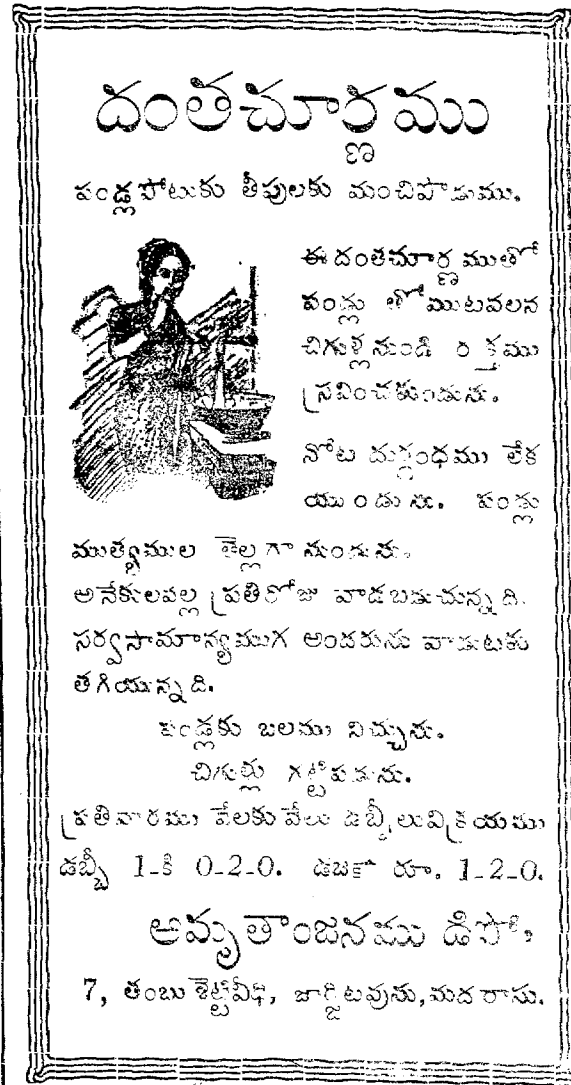 దంతచూర్ణము
పండ్లపోటుకు తీపులకు మంచిపొడుము.
ఈ దంతచూర్ణముతో
పండ్లు తోముటవలన
చిగుళ్లనుండి రక్తము
స్రవించకుండును.
నోట దుర్గంధము లేక
యుండును. పండ్లు
ముత్యముల తెల్లగా నుండును.
అనేకులవల్ల ప్రతిరోజు వాడబడుచున్నది.
సర్వసామాన్యముగ అందరును వాడుటకు
తగియున్నది.
పండ్లకు బలము నిచ్చును.
చిగుర్లు గట్టిపడును.
ప్రతివారము వేలకువేలు డబ్బీలువిక్రయము
డబ్బీ 1-కి 0-2-0. డజకా రూ. 1-2-0.
అమృతాంజనము డిపో,
7, తంబుశెట్టివీధి, జార్జిటవును, మదరాసు.